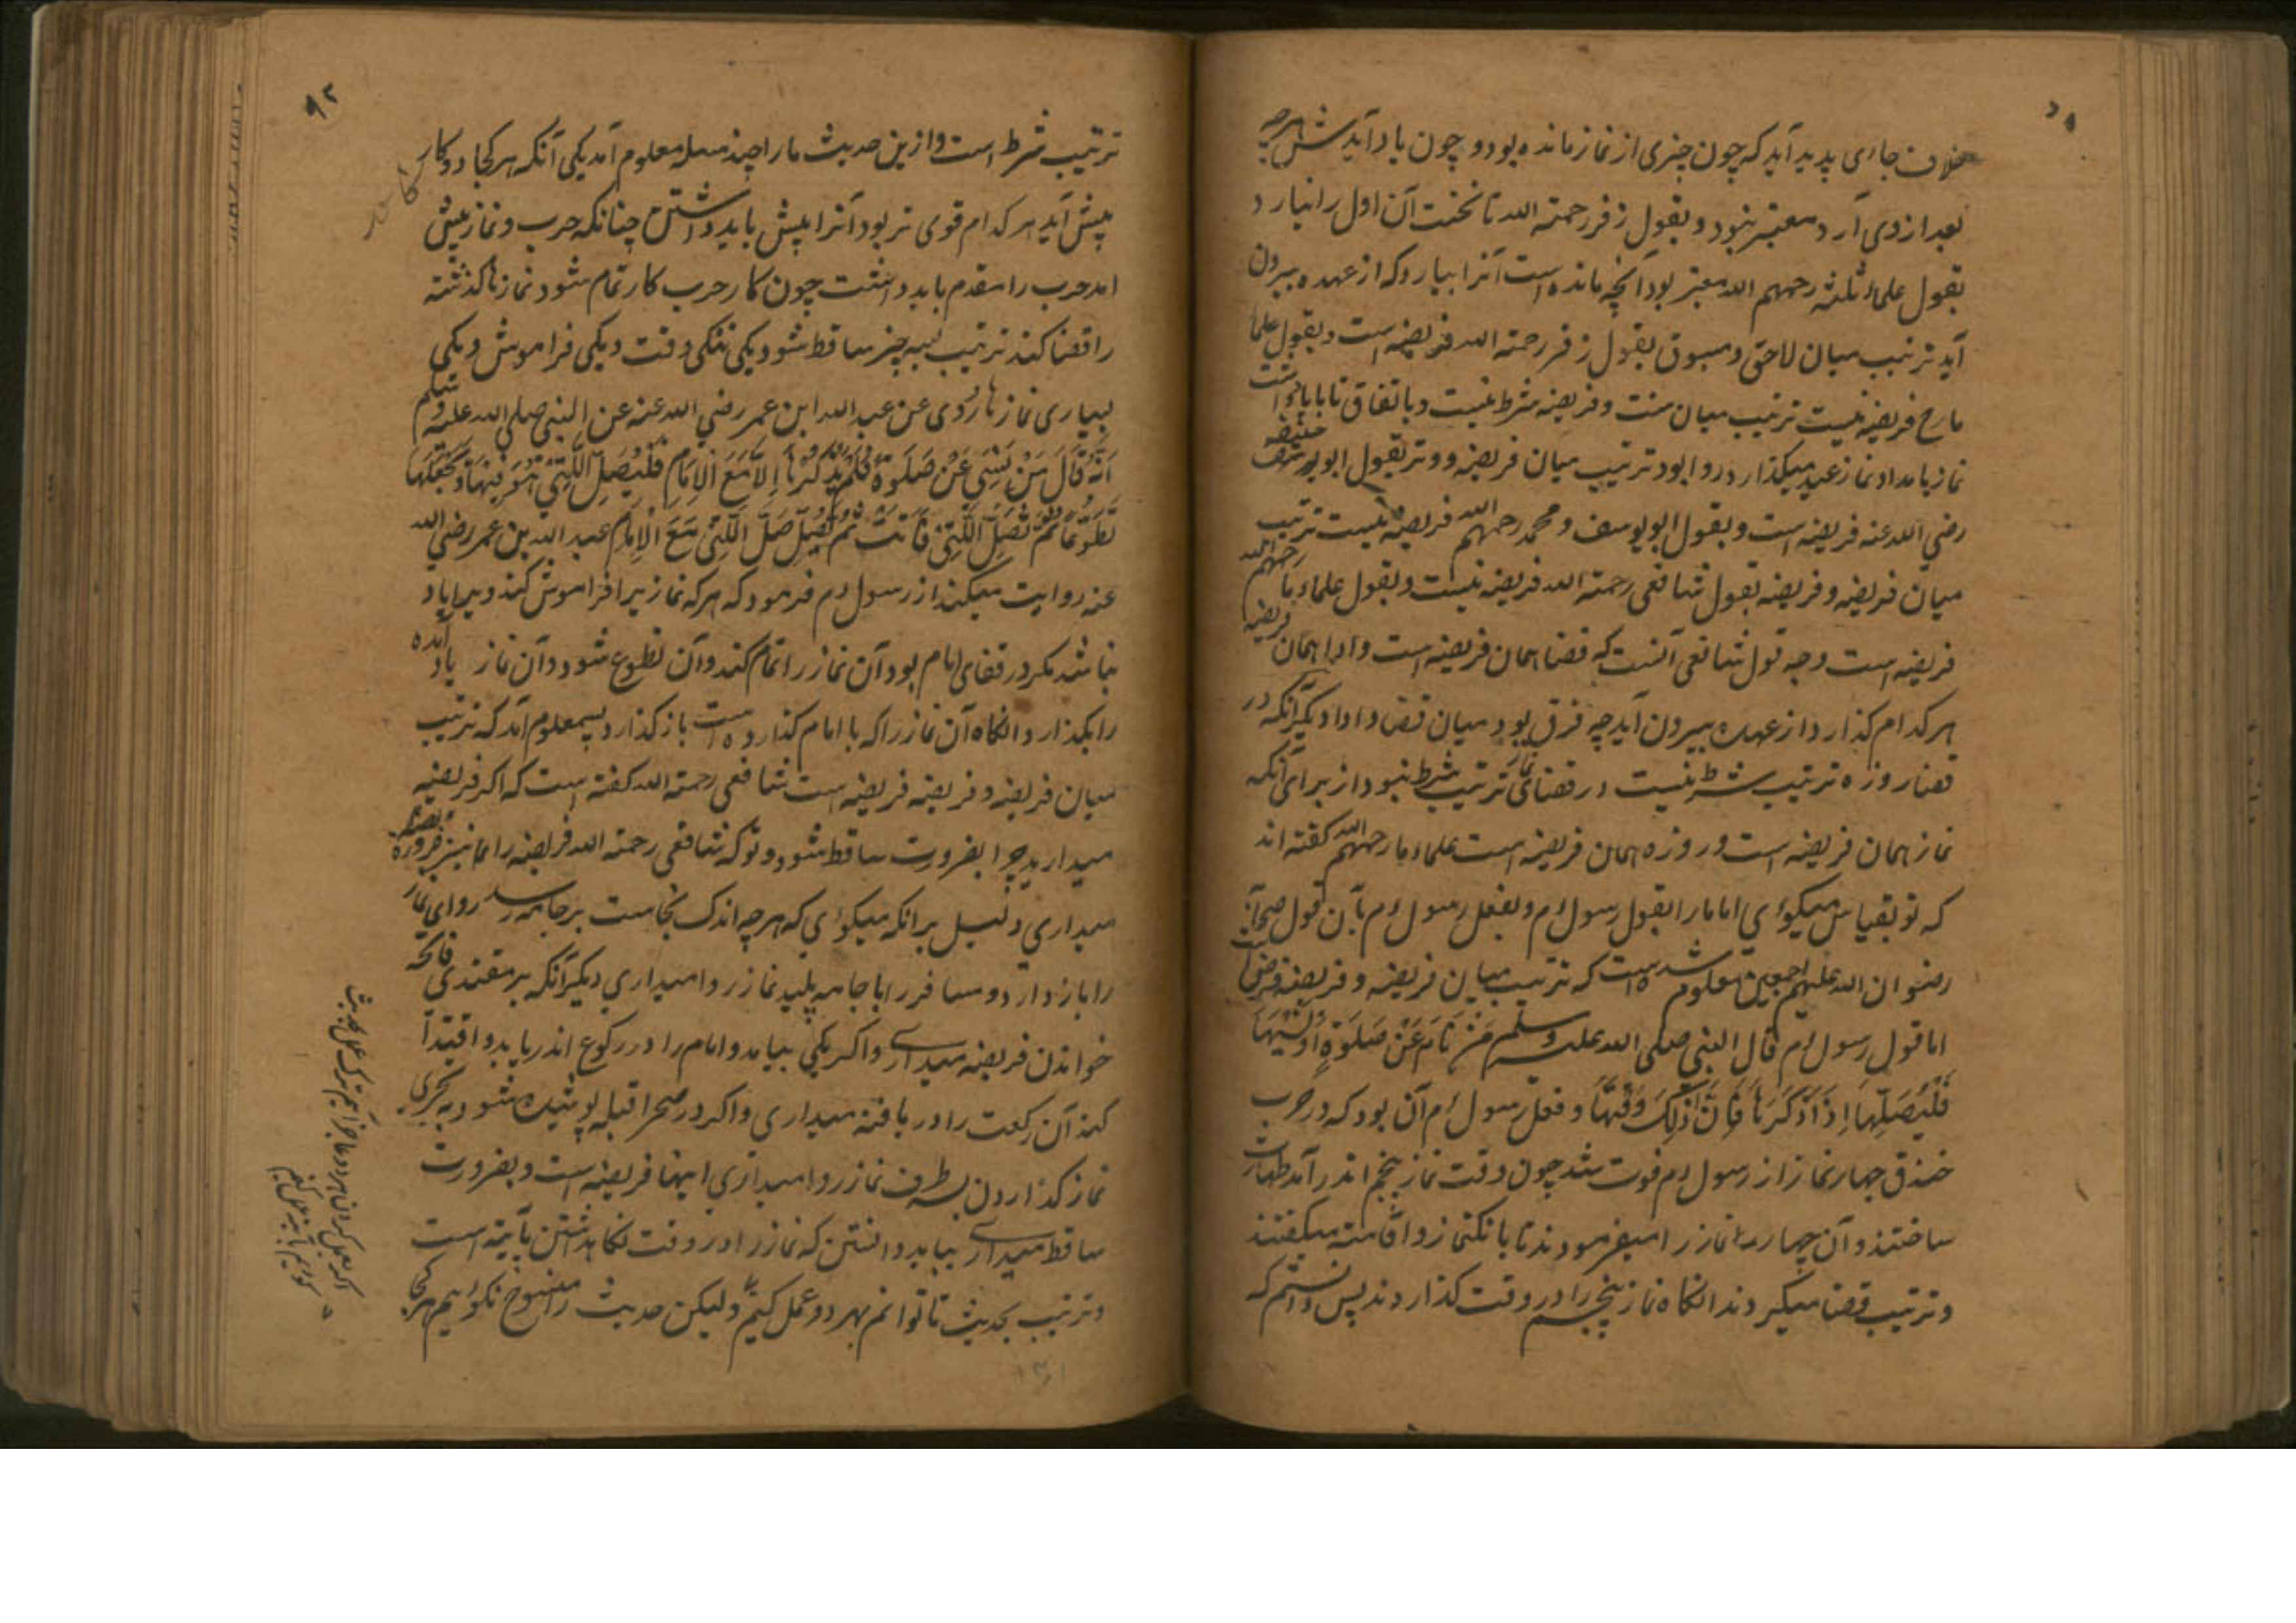 خلاف جای پدید آید که چون چیزی از نماز مانده بود و چون یاد آیدش هرچه
بعد ازوی آرد معتبر نبود و بقول زفر رحمته الله تا نخست آن اول را نیارد
بقول علماء ثلثه رحمهم الله معتبر بود آنچه مانده است آنرا بیارد که از عهده بیرون
آید ترتیب میان لاحق و مسبوق بقول زفر رحمته الله فریضه است و بقول علما
مارح فریضه نیست ترتیب میان سنت و فریضه شرط نیست و باتفاق تا
نماز بامداد نماز عید میگذارد روا بود ترتیب میان فریضه و وتر بقول ابو حنیفه
رضی الله عنه فریضه است و بقول ابو یوسف و محمد رحمهم الله فریضه نیست ترتیب
میان فریضه و فریضه بقول شافعی رحمته الله فریضه نیست و بقول علماء ما رحمهم الله
فریضه است وجه قول شافعی آنست که قضا همان فریضه است و ادا همان فریضه
هر کدام گذارد از عهده بیرون آید چه فرق بود میان قضا و ادا و دیگر آنکه در
قضا روزه ترتیب شرط نیست در قضای نماز ترتیب شرط نبود از برای آنکه
نماز همان فریضه است و روزه همان فریضه است علماء ما رحمهم الله گفته اند
که تو بقیاس میگوئی اما ما را بقول رسول م و بفعل رسول م بآن قول صحابه
رضوان الله علیهم اجمعین معلوم شده است که ترتیب میان فریضه و فریضه فرض است
اما قول رسول م قال النبی صلی الله علیه وسلم مَنْ نَامَ عَنْ صَلٰوةٍ اَوْ نَسِیَهَا
فَلْیُصَلِّهَا اِذَا ذَکَرَهَا فَاِنَّ ذٰلِکَ وَقْتُهَا و فعل رسول م آن بود که در حرب
خندق چهار نماز از رسول م فوت شد چون وقت نماز پنجم اندر آمد طهارت
ساختند و آن چهار نماز را میفرمودند تا بانگ نماز و اقامت میگفتند
و ترتیب قضا میکردند انگاه نماز پنجم را در وقت گذاردند پس دانستم که
۹۲
ترتیب شرط است و ازین حدیث ما را چند مسله معلوم آمد یکی آنکه هر کجا دو کار
پیش آید هر کدام قوی تر بود آنرا پیش باید داشتن چنانکه حرب و نماز پیش
امد حرب را مقدم باید داشت چون کار حرب کار تمام شود نمازها گذشته
را قضا کند ترتیب بسه چیز ساقط شود یکی تنگی وقت و یکی فراموش و یکی
بسیاری نمازها رُوی عن عبد الله ابن عمر رضی الله عنه عن النبی صلی الله علیه وسلم
اَنَّهُ قَالَ مَنْ نَسِیَ عَنْ صَلٰوةٍ فَلَمْ یَذْکُرْهَا اِلَّا مَعَ الْاِمَامِ فَلْیُصَلِّ الَّتِی هُوَ فِیهَا وَیَجْعَلُهَا
تَطَوُّعًا ثُمَّ تُصَلِّ الَّتِی فَاتَتْ ثُمَّ صَلَّ الَّتِی مَعَ الْاِمَامِ عبد الله بن عمر رضی الله
عنه روایت میکند از رسول م فرمود که هر که نماز یرا فراموش کند و یرا یاد
نباشد مکر در قفای امام بود آن نماز را تمام کند و آن تطوع شود و آن نماز یاد آمده
را بگذارد و انگاه آن نماز را که با امام گذارده است باز گذارد پس معلوم آمد که ترتیب
میان فریضه و فریضه فریضه است شافعی رحمته الله گفته است که اگر فریضه
میدارید چرا بضرورت ساقط شود و تو که شافعی رحمته الله فریضه را نیز
میداری دلیل برانکه میگوئی که هرچه اندک نجاست بر جامه رسد روای نماز
را باز دارد و مسافر را با جامه پلید نماز روا میداری دیگر آنکه بر مقتدی فاتحه
خواندن فریضه میداری و اگر یکی بیاید و امام را در رکوع اندر یابد و اقتدا
کند آن رکعت را دریافته میداری و اگر در صحرا قبله پوشیده شود به تحری
نماز گذاردن بطرف نماز روا میداری اینها فریضه است و بضرورت
ساقط میداری بباید دانستن که نماز را در وقت نگاهداشتن بآیته است
و ترتیب بحدیث تا توانم بهر دو عمل کنیم و لیکن حدیث را منسوخ نگوئیم هر کجا